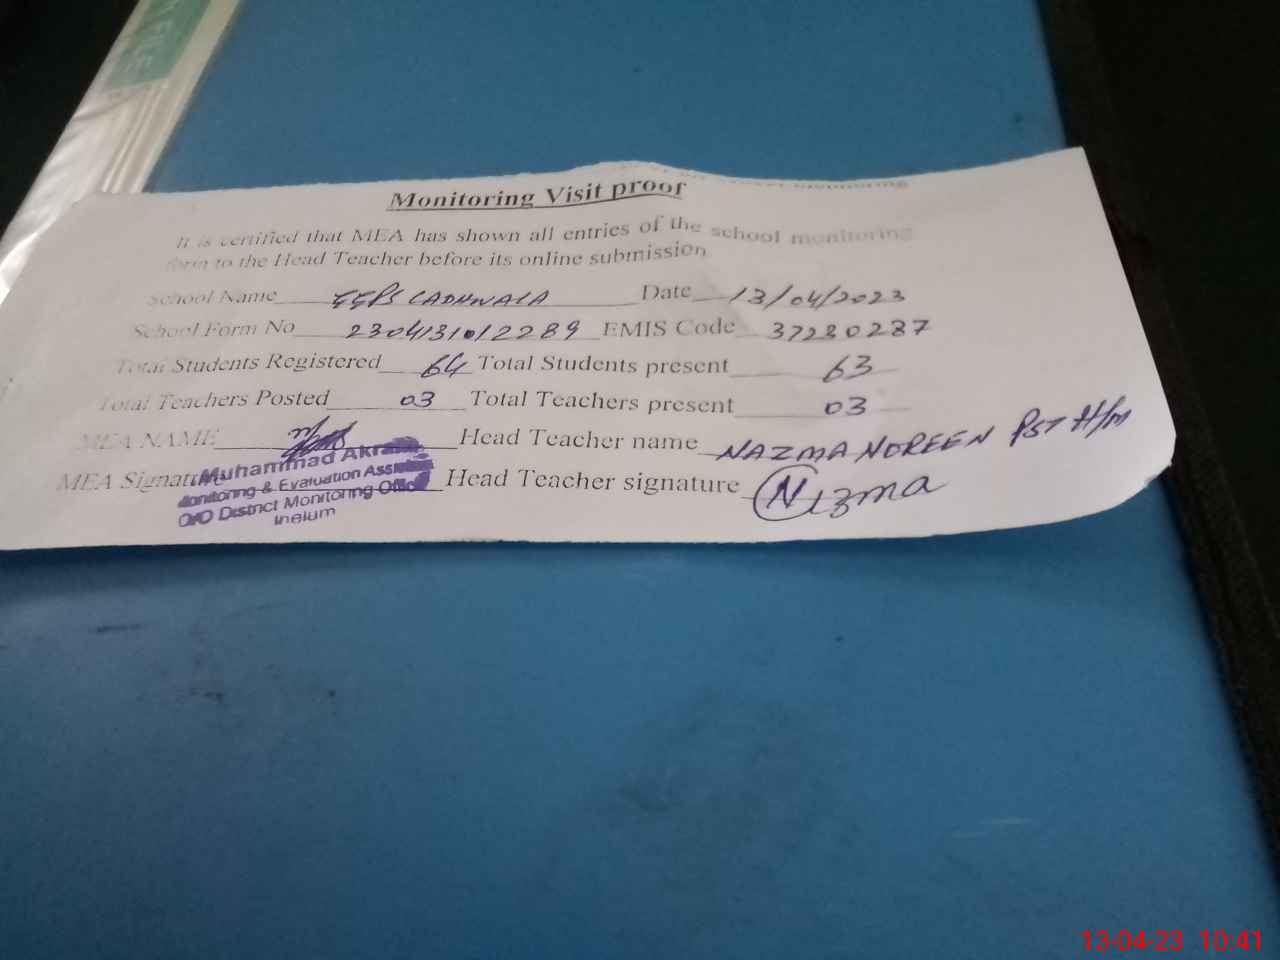 Monitoring Visit proof
It is certified that MEA has shown all entries of the school monitoring
form to the Head Teacher before its online submission
School Name GGPS LADHWALA Date 13/04/2023
School Form No 2304131012289 EMIS Code 37230287
Total Students Registered 64 Total Students present 63
Total Teachers Posted 03 Total Teachers present 03
MEA NAME Head Teacher name NAZMA NOREEN PST H/m
MEA Signature Head Teacher signature Nazma
Muhammad Akram
Monitoring & Evaluation Assistant
O/O District Monitoring Office
Jhelum
13-04-23 10:41